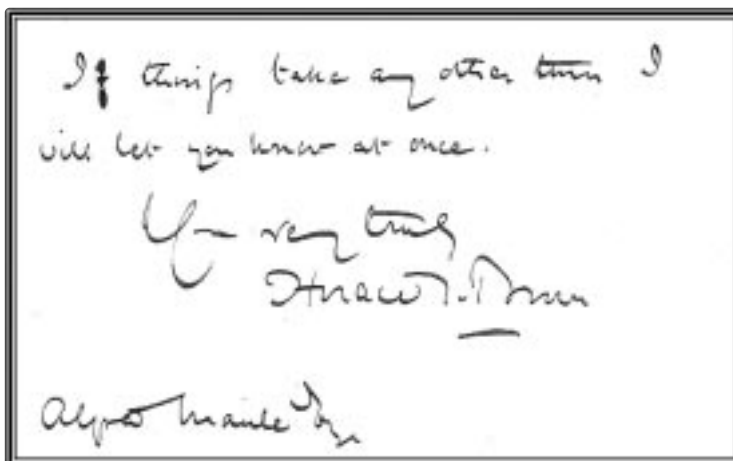 If things take any other turn I
will let you know at once.
Yrs very truly
Horace T. Brown
Alfred Maule Esq.